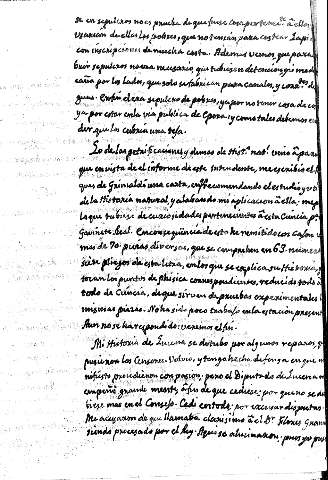 se en sepulcros no es prueba de que fuese cosa perteneciᵗᵉ â ellos
usarian de ellas los pobres, que no tenian para costear Lapid
con inscripciones de mucha costa. Ademas vemos, que para
buir sepulcros no era necesario que tubiesen detencion ni mo
caña por los lados, que solo se fabrican para canales, y
guas. En fin el era sepulcro de pobres, ya por no tener cosa de co
ya por estar en la via publica de Epora: y como tales debemos en
der que los cubria una tela.
Lo de las petrificaciones y demas de Histᵃ natˡ vino â para
que en vista de el informe de este Intendente, me escribio el
ques de Grimaldi una carta, recomendando el estudio
de la Historia natural, y alabando mi aplicacion â ella,
lo que tubiese de curiosidades pertenecientes â esta Ciencia pᵃ
Gavinete Real. En consequencia de esto he remitido con cajon
mas de 70 piezas diversas, que se comprehenden en 63 numeros
siete pliegos de esta letra, en los que se explica su Historia,
tocan los puntos de phisica correspondientes, reducido todo â
todo de Ciencia, de que sirven de pruebas experimentales
mismas piezas. No ha sido poco trabajo en la estacion presente
Aun no se ha respondido: veremos el fin.
Mi Historia de Lucena se detubo por algunos reparos, q
pusieron los Censores. Volvio, y tengo hecha defensa en que
nifiesto procedieron con pasion: pero el Diputado de Lucena
empeñó grande mente, â fin de que cediese: por que no se
tiese mas en el Consejo. Cedi en todo; por excusar disputas
Me acusaron de que llamaba clarisimo â el Dʳ Flores
siendo procesado por el Rey. Aqui se alucinaron: pues yo